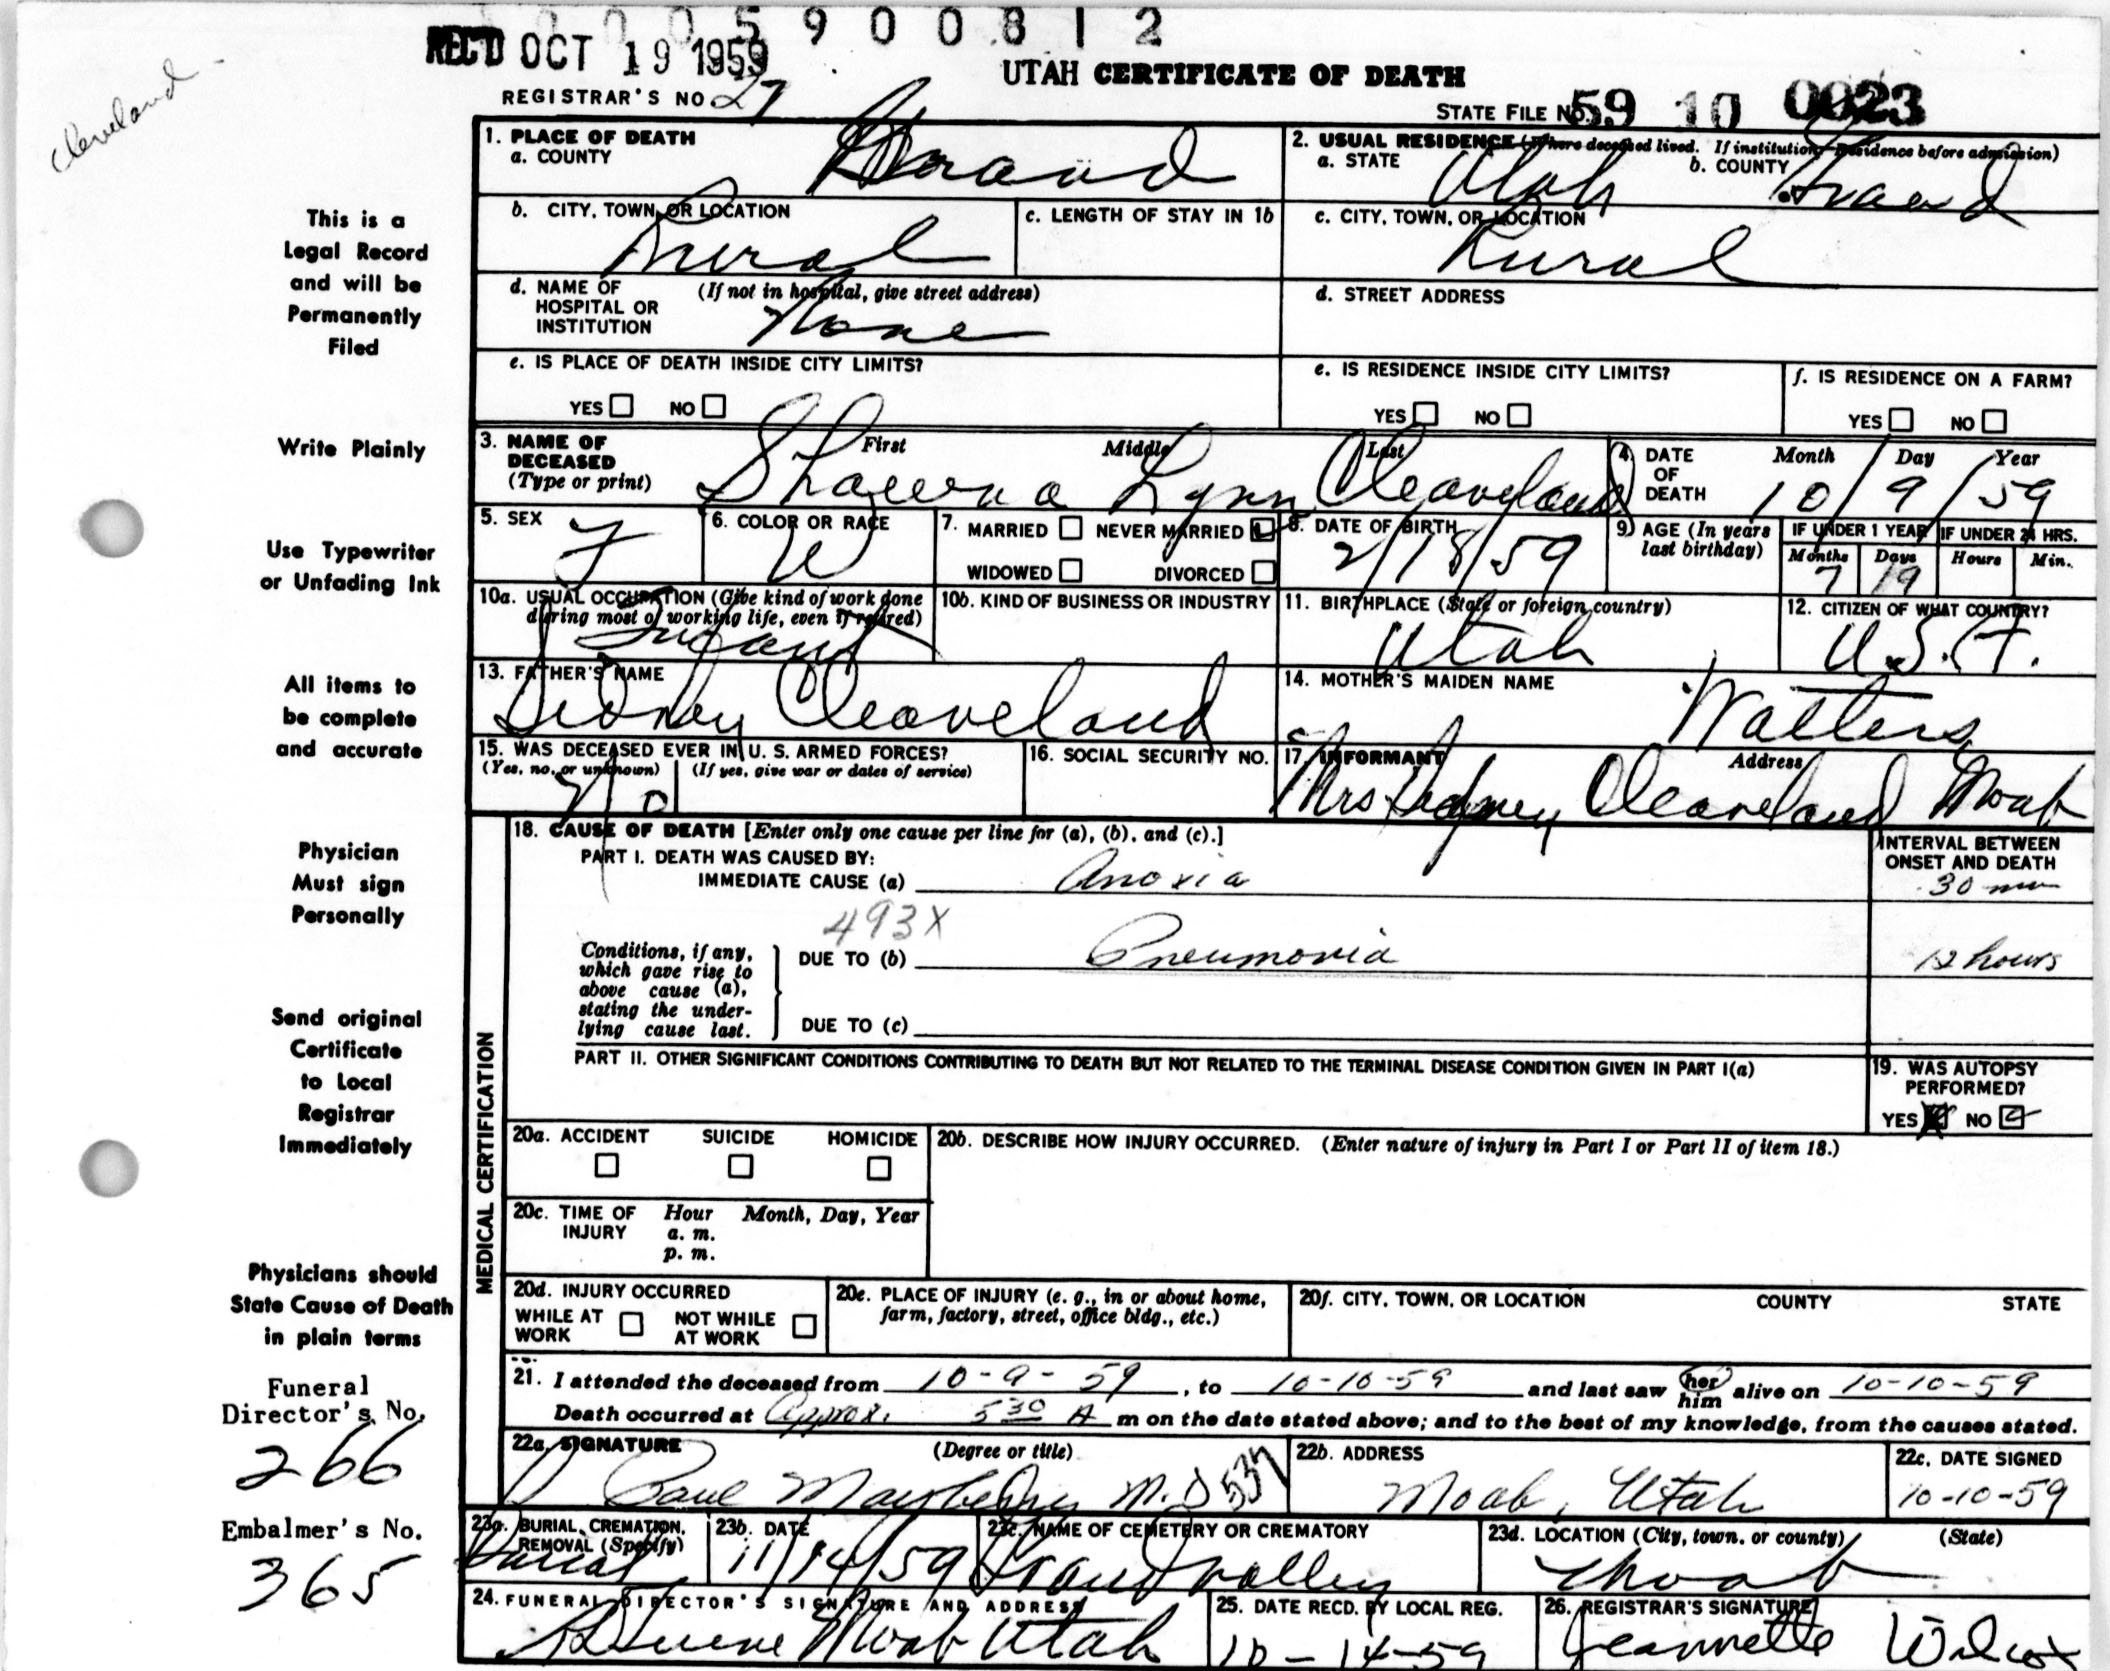 0005900812
REC'D OCT 19 1959
Cleveland
UTAH CERTIFICATE OF DEATH
REGISTRAR'S NO 27
STATE FILE NO. 59 10 0023
1. PLACE OF DEATH
a. COUNTY Grand
2. USUAL RESIDENCE (Where deceased lived. If institution: Residence before admission)
a. STATE Utah b. COUNTY Grand
b. CITY, TOWN, OR LOCATION Rural
c. LENGTH OF STAY IN 1b
c. CITY, TOWN, OR LOCATION Rural
d. NAME OF HOSPITAL OR INSTITUTION (If not in hospital, give street address) None
d. STREET ADDRESS
e. IS PLACE OF DEATH INSIDE CITY LIMITS?
YES NO
e. IS RESIDENCE INSIDE CITY LIMITS?
YES NO
f. IS RESIDENCE ON A FARM?
YES NO
3. NAME OF DECEASED (Type or print) First Middle Last
Shawna Lynn Cleaveland
4. DATE OF DEATH Month Day Year
10/9/59
5. SEX F
6. COLOR OR RACE W
7. MARRIED NEVER MARRIED
WIDOWED DIVORCED
8. DATE OF BIRTH 2/18/59
9. AGE (In years last birthday)
IF UNDER 1 YEAR IF UNDER 24 HRS.
Months Days Hours Min.
7 19
10a. USUAL OCCUPATION (Give kind of work done during most of working life, even if retired) Infant
10b. KIND OF BUSINESS OR INDUSTRY
11. BIRTHPLACE (State or foreign country) Utah
12. CITIZEN OF WHAT COUNTRY? U.S.A.
13. FATHER'S NAME Sidney Cleaveland
14. MOTHER'S MAIDEN NAME Walters
15. WAS DECEASED EVER IN U. S. ARMED FORCES?
(Yes, no, or unknown) (If yes, give war or dates of service)
No
16. SOCIAL SECURITY NO.
17. INFORMANT Address
Mrs Sidney Cleaveland Moab
MEDICAL CERTIFICATION
18. CAUSE OF DEATH [Enter only one cause per line for (a), (b), and (c).]
PART I. DEATH WAS CAUSED BY:
IMMEDIATE CAUSE (a) Anoxia
INTERVAL BETWEEN ONSET AND DEATH
30 min
493X
Conditions, if any, which gave rise to above cause (a), stating the underlying cause last.
DUE TO (b) Pneumonia 12 hours
DUE TO (c)
PART II. OTHER SIGNIFICANT CONDITIONS CONTRIBUTING TO DEATH BUT NOT RELATED TO THE TERMINAL DISEASE CONDITION GIVEN IN PART I(a)
19. WAS AUTOPSY PERFORMED?
YES NO
20a. ACCIDENT SUICIDE HOMICIDE
20b. DESCRIBE HOW INJURY OCCURRED. (Enter nature of injury in Part I or Part II of item 18.)
20c. TIME OF INJURY Hour Month, Day, Year
a. m.
p. m.
20d. INJURY OCCURRED
WHILE AT WORK NOT WHILE AT WORK
20e. PLACE OF INJURY (e. g., in or about home, farm, factory, street, office bldg., etc.)
20f. CITY, TOWN, OR LOCATION COUNTY STATE
21. I attended the deceased from 10-9-59, to 10-10-59 and last saw her him alive on 10-10-59
Death occurred at Approx. 530 A m on the date stated above; and to the best of my knowledge, from the causes stated.
22a. SIGNATURE (Degree or title)
Paul Mayberry M.D 537
22b. ADDRESS Moab, Utah
22c. DATE SIGNED 10-10-59
23a. BURIAL, CREMATION, REMOVAL (Specify) Burial
23b. DATE 11/14/59
23c. NAME OF CEMETERY OR CREMATORY Grand valley
23d. LOCATION (City, town, or county) (State)
Moab
24. FUNERAL DIRECTOR'S SIGNATURE AND ADDRESS
Moab Utah
25. DATE RECD. BY LOCAL REG. 10-14-59
26. REGISTRAR'S SIGNATURE Jeannette Wilcox
This is a
Legal Record
and will be
Permanently
Filed
Write Plainly
Use Typewriter
or Unfading Ink
All items to
be complete
and accurate
Physician
Must sign
Personally
Send original
Certificate
to Local
Registrar
Immediately
Physicians should
State Cause of Death
in plain terms
Funeral
Director's No.
266
Embalmer's No.
365